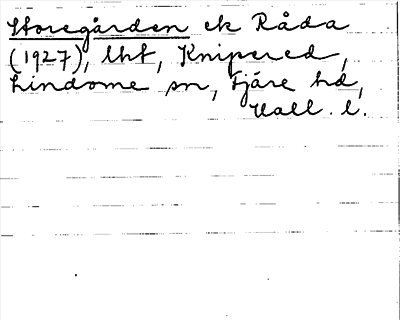 Storegården ek Råda
(1927), lht, Knipered,
Lindome sn, Fjäre hd,
Hall. l.